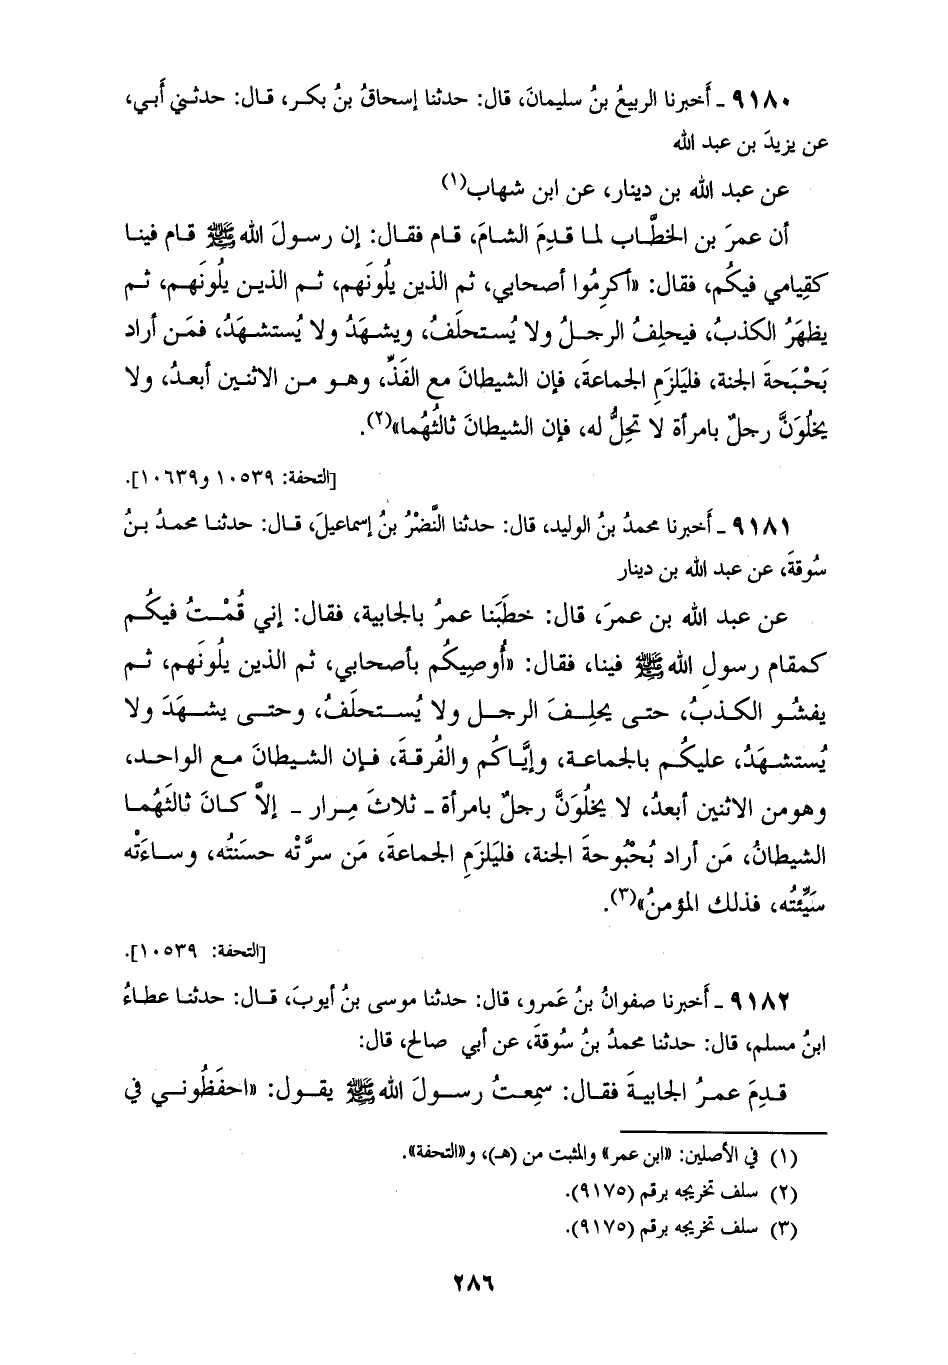 ٩١٨٠ ـ أَخبرنا الربيعُ بنُ سليمانَ، قال: حدثنا إسحاقُ بنُ بكر، قـال: حدثـني أَبي،
عن يزيدَ بن عبد الله
عن عبد الله بن دينار، عن ابن شهاب(١)
أن عمرَ بن الخطَّاب لما قدِمَ الشامَ، قام فقال: إن رسولَ الله ﷺ قام فينـا
كقِيامي فيكُم، فقال: «أكرِمُوا أصحابي، ثم الذين يلُونَهم، ثـم الذيـن يلُونَهـم، ثـم
يظهَرُ الكذبُ، فيحلِفُ الرجـلُ ولا يُستحلَفُ، ويشهَدُ ولا يُستشهَدُ، فمَـن أراد
بَحْبَحةَ الجنة، فليَلزَمِ الجماعةَ، فإن الشيطانَ مع الفَذِّ، وهـو مـن الاثنـين أبعـدُ، ولا
يخلُوَنَّ رجلٌ بامرأة لا تحِلُّ له، فإن الشيطانَ ثالثُهُما»(٢).
[التحفة: ١٠٥٣٩ و١٠٦٣٩].
٩١٨١ ـ أَخبرنا محمدُ بنُ الوليد، قال: حدثنا النَّضْرُ بنُ إسماعيلَ، قـال: حدثنـا محمـدُ بـنُ
سُوقةَ، عن عبد الله بن دينار
عن عبد الله بن عمرَ، قال: خطَبَنا عمرُ بالجابية، فقال: إني قُمْـتُ فيكُـم
كمقام رسولِ الله ﷺ فينا، فقال: «أُوصِيكُم بأصحابي، ثم الذين يلُونَهم، ثـم
يفشُـو الكـذبُ، حتـى يحلِـفَ الرجـل ولا يُسـتحلَفُ، وحتـى يشـهَدَ ولا
يُستشـهَدُ، عليكُـم بالجماعـة، وإيَّـاكُم والفُرقـةَ، فـإن الشـيطانَ مـع الواحـد،
وهو من الاثنين أبعدُ، لا يخلُوَنَّ رجلٌ بامرأة ـ ثـلاثَ مِـرار ـ إلاَّ كـانَ ثالثَهُمـا
الشيطانُ، مَن أراد بُحْبُوحةَ الجنة، فليَلزَمِ الجماعةَ، مَن سرَّتْه حسَنتُه، وسـاءَتْه
سَيِّئتُه، فذلك المؤمنُ»(٣).
[التحفة: ١٠٥٣٩].
٩١٨٢ ـ أَخبرنا صفوانُ بنُ عَمرو، قال: حدثنا موسى بنُ أيوبَ، قـال: حدثنـا عطـاءُ
ابنُ مسلم، قال: حدثنا محمدُ بنُ سُوقةَ، عن أبي صالح، قال:
قـدِمَ عمـرُ الجابيـةَ فقـال: سمِعـتُ رسـولَ الله ﷺ يقـول: «احفَظُونـي في
(١) في الأصلين: «ابن عمر» والمثبت من (هـ)، و«التحفة».
(٢) سلف تخريجه برقم (٩١٧٥).
(٣) سلف تخريجه برقم (٩١٧٥).
٢٨٦